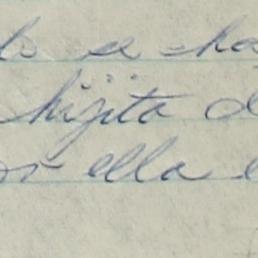 se ha
hijita d
or ella